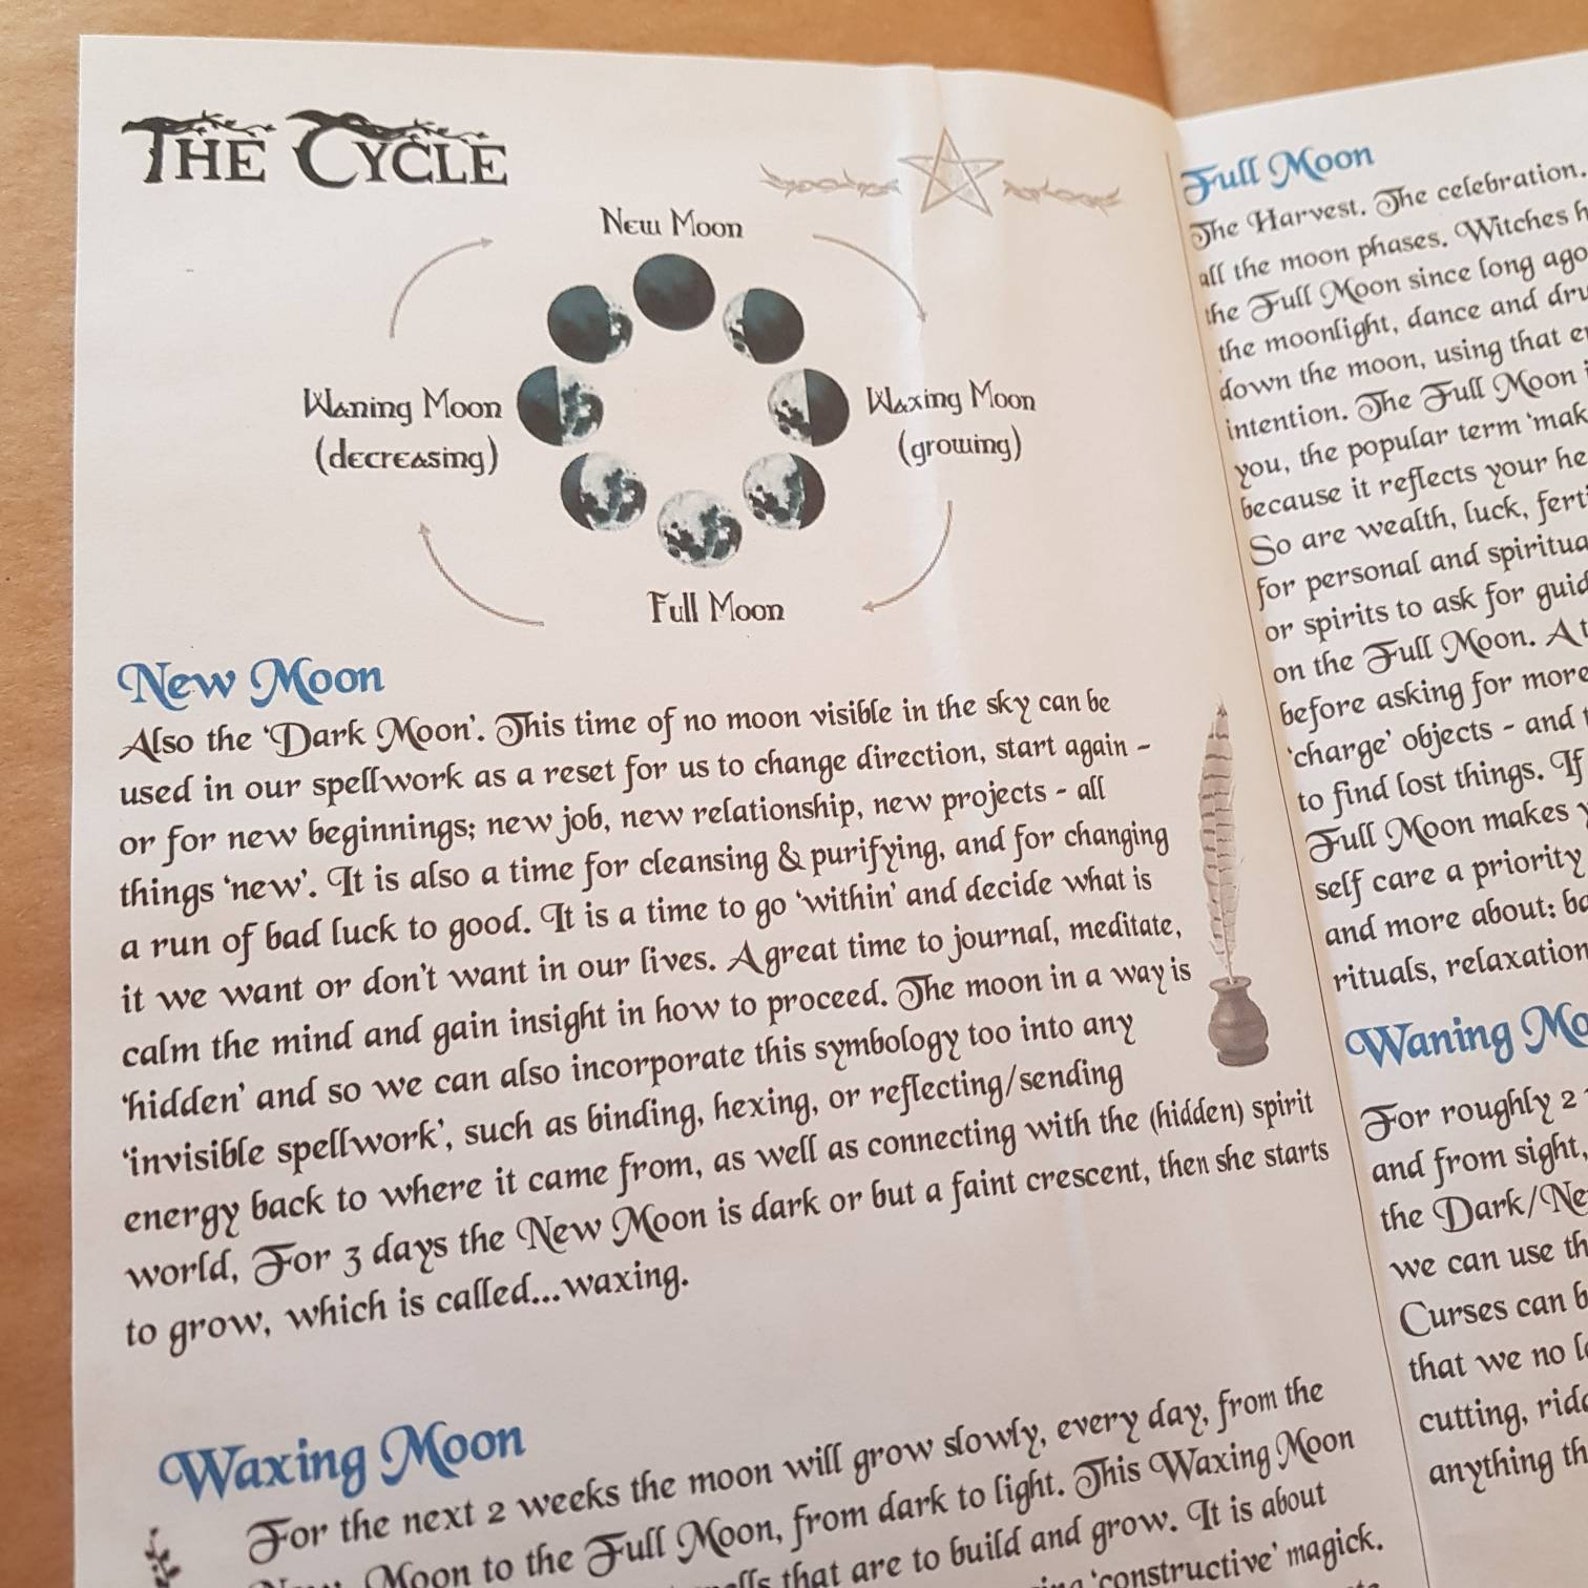 THE CYCLE
New Moon
Waning Moon
(decreasing)
Waxing Moon
(growing)
Full Moon
New Moon
Also the 'Dark Moon'. This time of no moon visible in the sky can be
used in our spellwork as a reset for us to change direction, start again -
or for new beginnings; new job, new relationship, new projects - all
things 'new'. It is also a time for cleansing & purifying, and for changing
a run of bad luck to good. It is a time to go 'within' and decide what is
it we want or don't want in our lives. A great time to journal, meditate,
calm the mind and gain insight in how to proceed. The moon in a way is
'hidden' and so we can also incorporate this symbology too into any
'invisible spellwork', such as binding, hexing, or reflecting/sending
energy back to where it came from, as well as connecting with the (hidden) spirit
world, For 3 days the New Moon is dark or but a faint crescent, then she starts
to grow, which is called...waxing.
Waxing Moon
For the next 2 weeks the moon will grow slowly, every day, from the
Moon to the Full Moon, from dark to light. This Waxing Moon
that are to build and grow. It is about
'constructive' magick.
Full Moon
The Harvest. The celebration.
all the moon phases. Witches
the Full Moon since long ago
the moonlight, dance and
down the moon, using that
intention. The Full Moon
you, the popular term
because it reflects your
So are wealth, luck,
for personal and
or spirits to ask for
on the Full Moon. A
before asking for more
'charge' objects - and
to find lost things. If
Full Moon makes
self care a priority
and more about:
rituals, relaxation
Waning
For roughly 2
and from sight,
the Dark/
we can use
Curses can
that we no
cutting,
anything